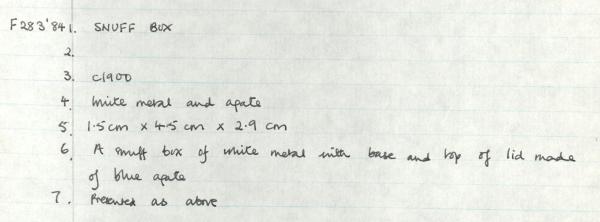 F283'84 1. SNUFF BOX
2.
3. c1900
4. White metal and agate
5. 1.5cm x 4.5 cm x 2.9 cm
6. A snuff box of white metal with base and top of lid made
of blue agate
7. Presented as above